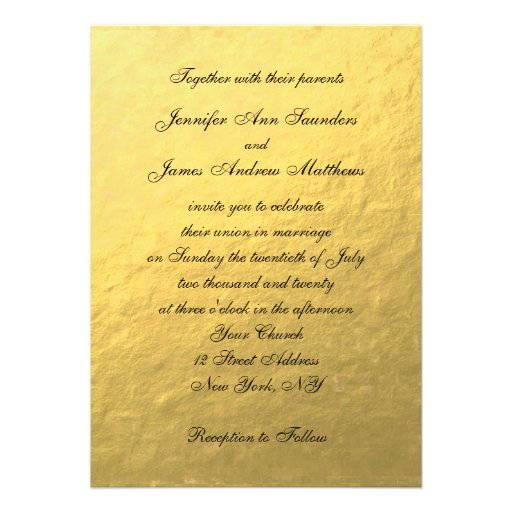 Together with their parents
Jennifer Ann Saunders
and
James Andrew Matthews
invite you to celebrate
their union in marriage
on Sunday the twentieth of July
two thousand and twenty
at three o'clock in the afternoon
Your Church
12 Street Address
New York, NY
Reception to Follow